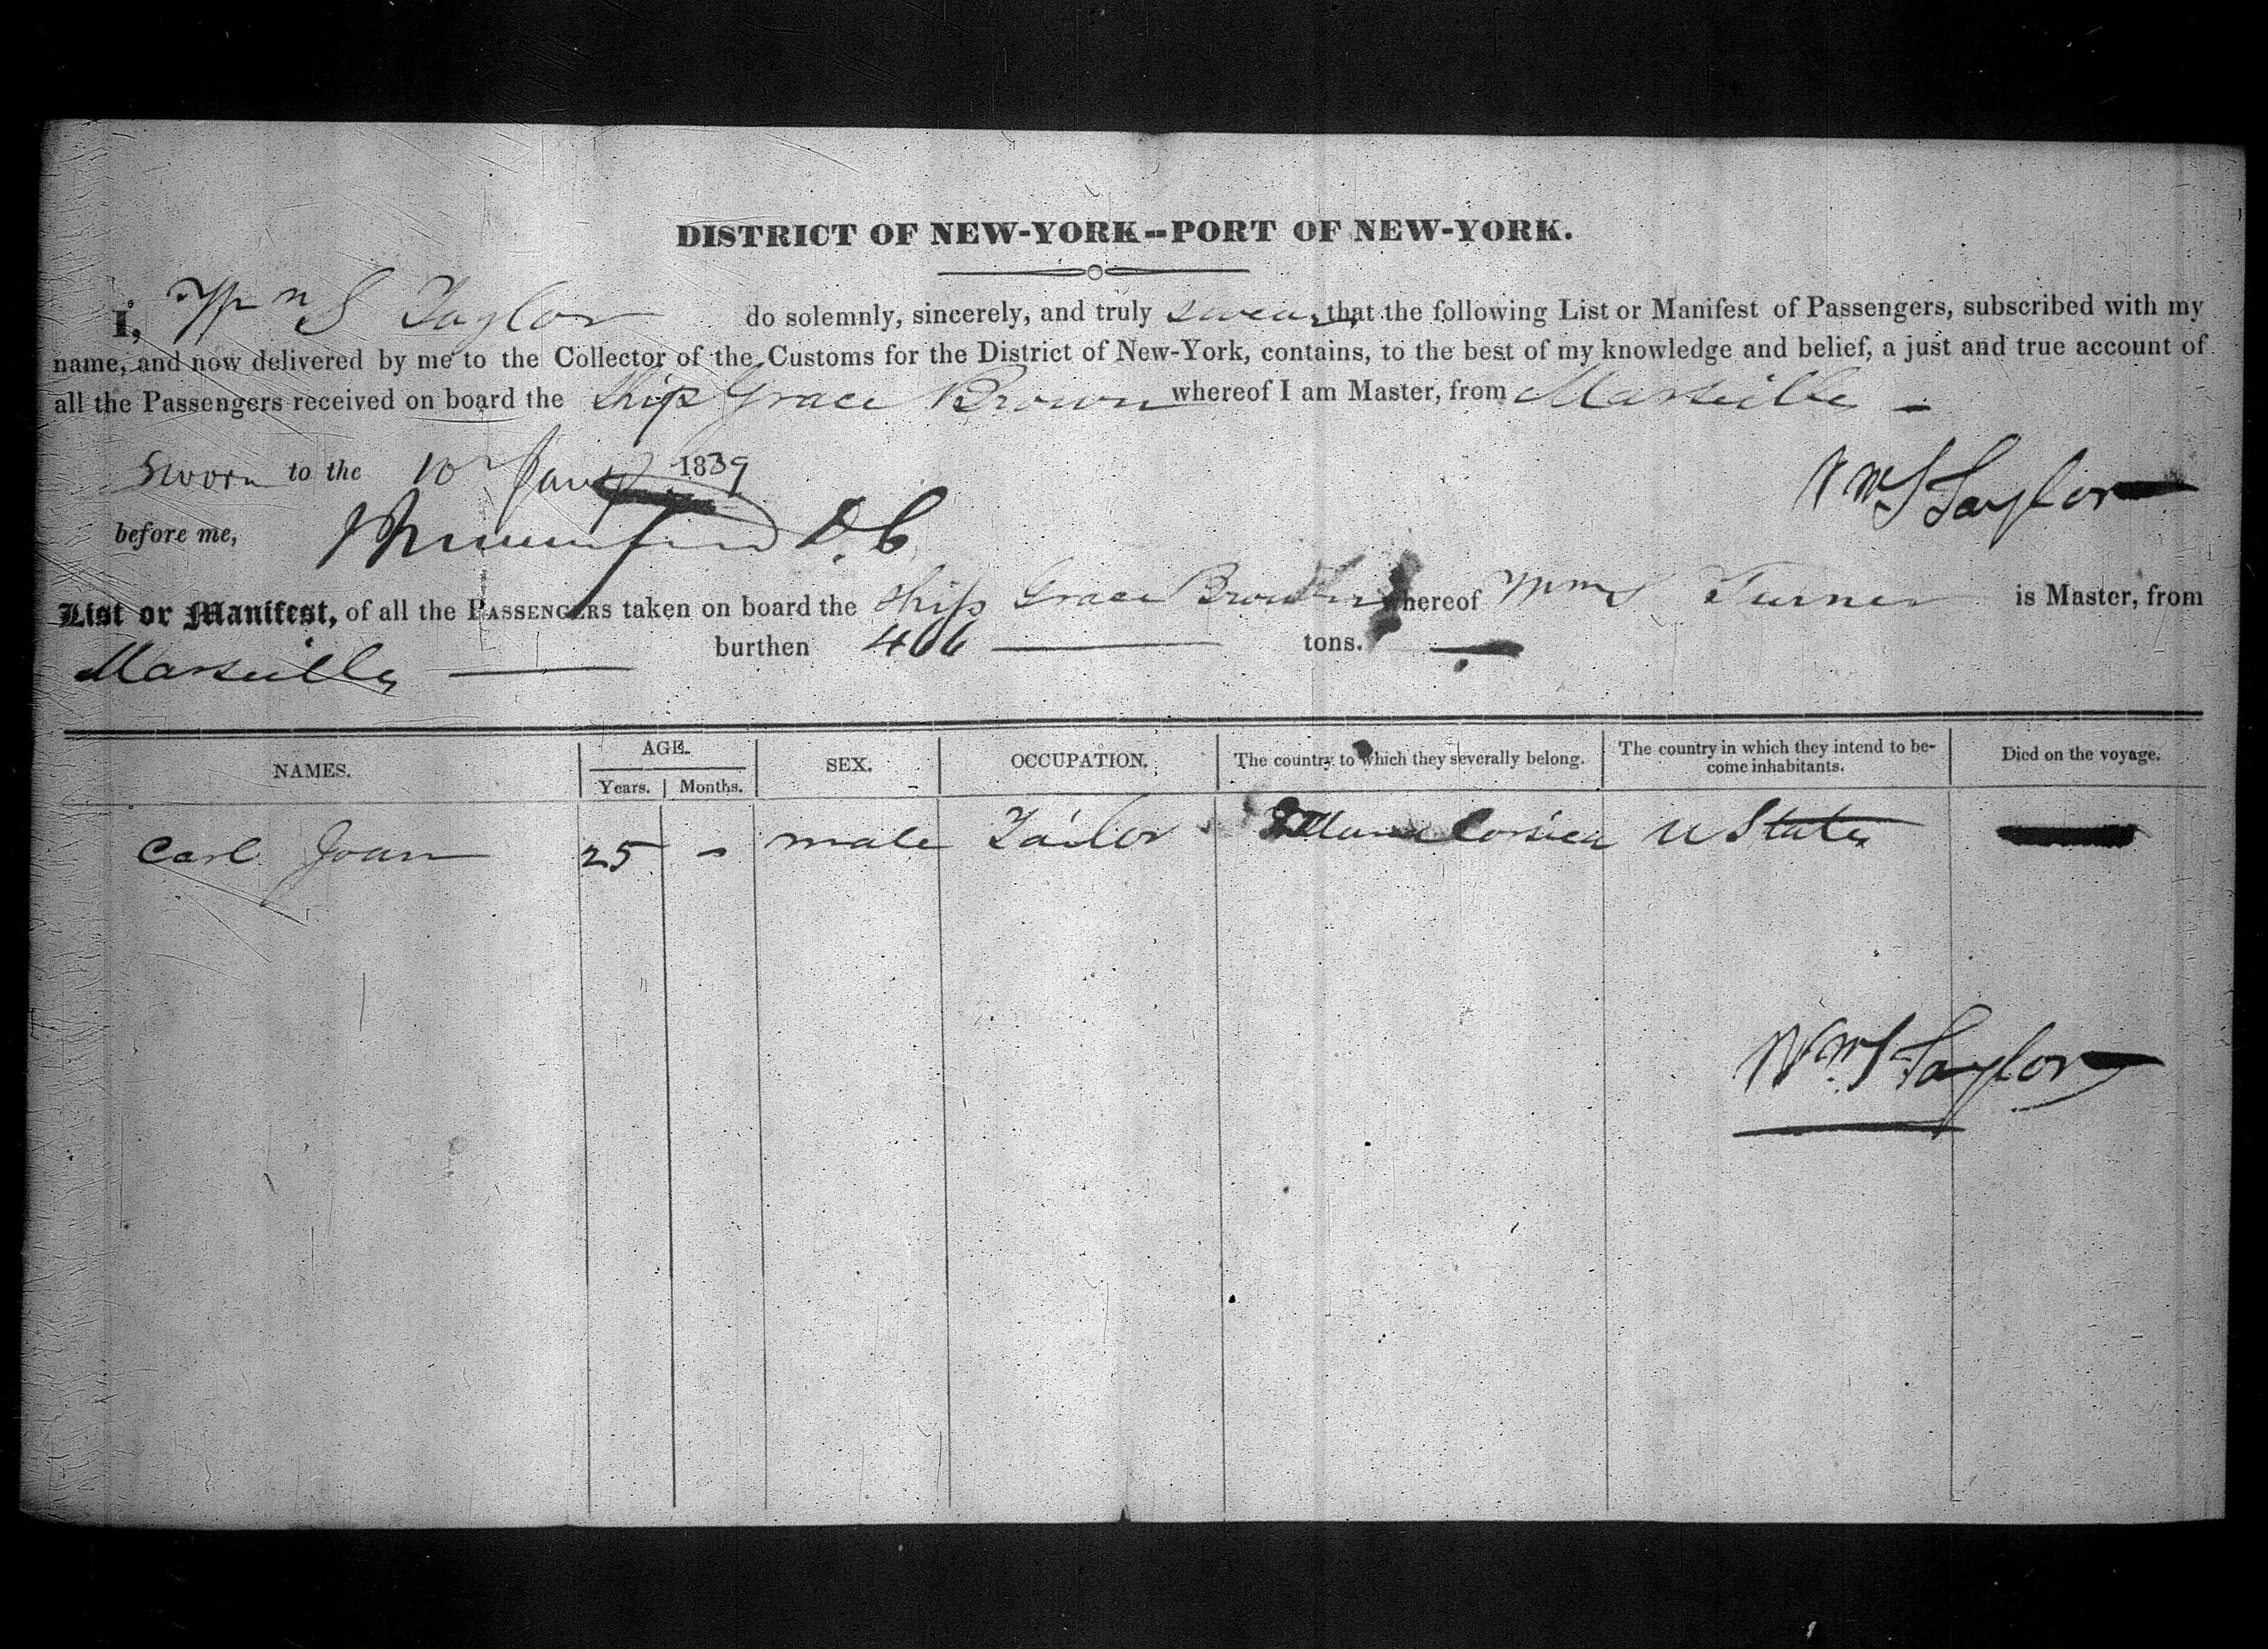 DISTRICT OF NEW-YORK--PORT OF NEW-YORK.
I, Wm S Taylor do solemnly, sincerely, and truly swear that the following List or Manifest of Passengers, subscribed with my
name, and now delivered by me to the Collector of the Customs for the District of New-York, contains, to the best of my knowledge and belief, a just and true account of
all the Passengers received on board the Ship Grace Brown whereof I am Master, from Marseilles
Sworn to the 10 Jany 1839
Wm S Taylor
before me, D. C
List or Manifest, of all the PASSENGERS taken on board the Ship Grace Brown whereof Wm S Turner is Master, from
Marseilles burthen 406 tons.
NAMES. AGE. Years. Months. SEX. OCCUPATION. The country to which they severally belong. The country in which they intend to become inhabitants. Died on the voyage.
Carl Joan 25 - male Tailor Corsica U States
Wm S Taylor